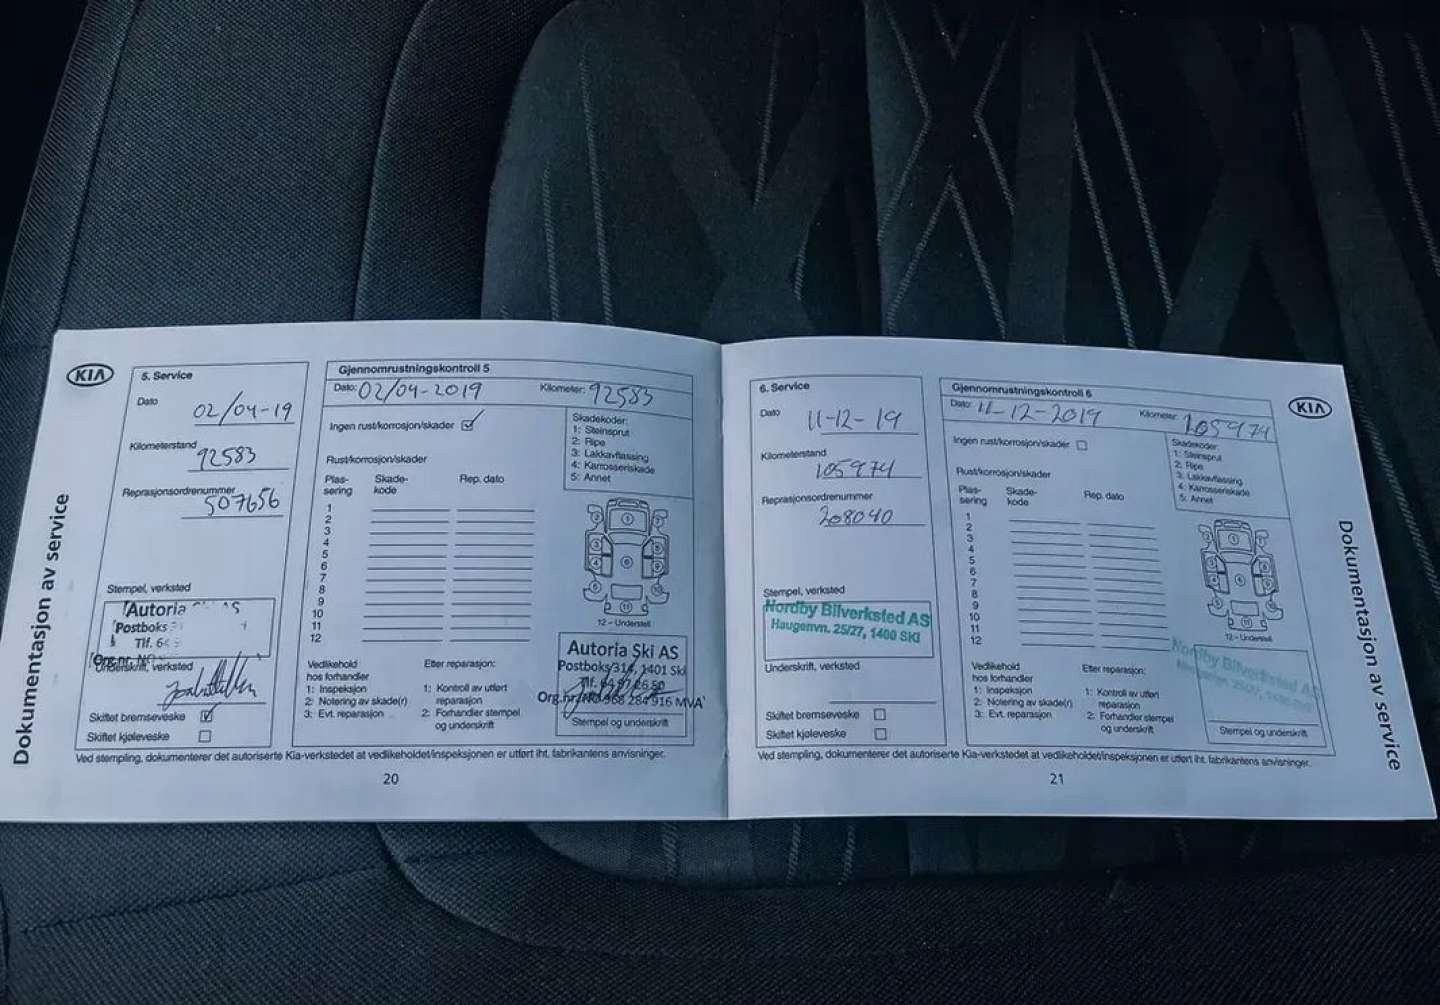 KIA
Dokumentasjon av service
5. Service
Dato
02/04-19
Kilometerstand
92583
Reprasjonsordrenummer
507656
Stempel, verksted
Autoria
Postboks
Tlf.
Underskrift, verksted
Skiftet bremseveske
Skiftet kjøleveske
Gjennomrustningskontroll 5
Dato: 02/04-2019 Kilometer: 92583
Ingen rust/korrosjon/skader
Rust/korrosjon/skader
Plas-
sering
Skade-
kode
Rep. dato
1
2
3
4
5
6
7
8
9
10
11
12
Skadekoder:
1: Steinsprut
2: Ripe
3: Lakkavflassing
4: Karrosseriskade
5: Annet
12 - Understell
Vedlikehold
hos forhandler
1: Inspeksjon
2: Notering av skade(r)
3: Evt. reparasjon
Etter reparasjon:
1: Kontroll av utført
reparasjon
2: Forhandler stempel
og underskrift
Autoria Ski AS
Postboks 314, 1401 Ski
Tlf. 64 97 26 50
Org.nr. NO 968 284 916 MVA
Stempel og underskrift
Ved stempling, dokumenterer det autoriserte Kia-verkstedet at vedlikeholdet/inspeksjonen er utført iht. fabrikantens anvisninger.
20
6. Service
Dato
11-12-19
Kilometerstand
105974
Reprasjonsordrenummer
208040
Stempel, verksted
Nordby Bilverksted AS
Haugenvn. 25/27, 1400 SKI
Underskrift, verksted
Skiftet bremseveske
Skiftet kjøleveske
Gjennomrustningskontroll 6
Dato: 11-12-2019 Kilometer: 105974
Ingen rust/korrosjon/skader
Rust/korrosjon/skader
Plas-
sering
Skade-
kode
Rep. dato
1
2
3
4
5
6
7
8
9
10
11
12
Skadekoder:
1: Steinsprut
2: Ripe
3: Lakkavflassing
4: Karrosseriskade
5: Annet
12 - Understell
Vedlikehold
hos forhandler
1: Inspeksjon
2: Notering av skade(r)
3: Evt. reparasjon
Etter reparasjon:
1: Kontroll av utført
reparasjon
2: Forhandler stempel
og underskrift
Nordby Bilverksted AS
Stempel og underskrift
Ved stempling, dokumenterer det autoriserte Kia-verkstedet at vedlikeholdet/inspeksjonen er utført iht. fabrikantens anvisninger.
21
KIA
Dokumentasjon av service